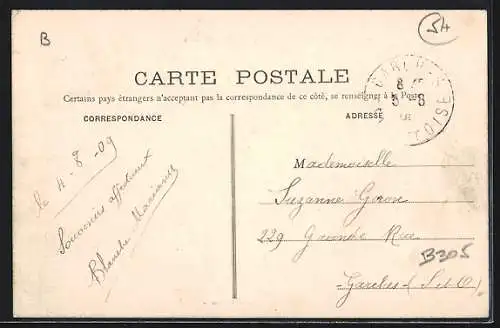 B
54
CARTE POSTALE
Certains pays étrangers n'acceptant pas la correspondance de ce côté, se renseigner à la Poste
CORRESPONDANCE
ADRESSE
8
5-8
OISE
le 4-8-09
Souvenirs affectueux
Blanche
Mademoiselle
Suzanne
229 Grande Rue
B305
Garches (S-et-O)